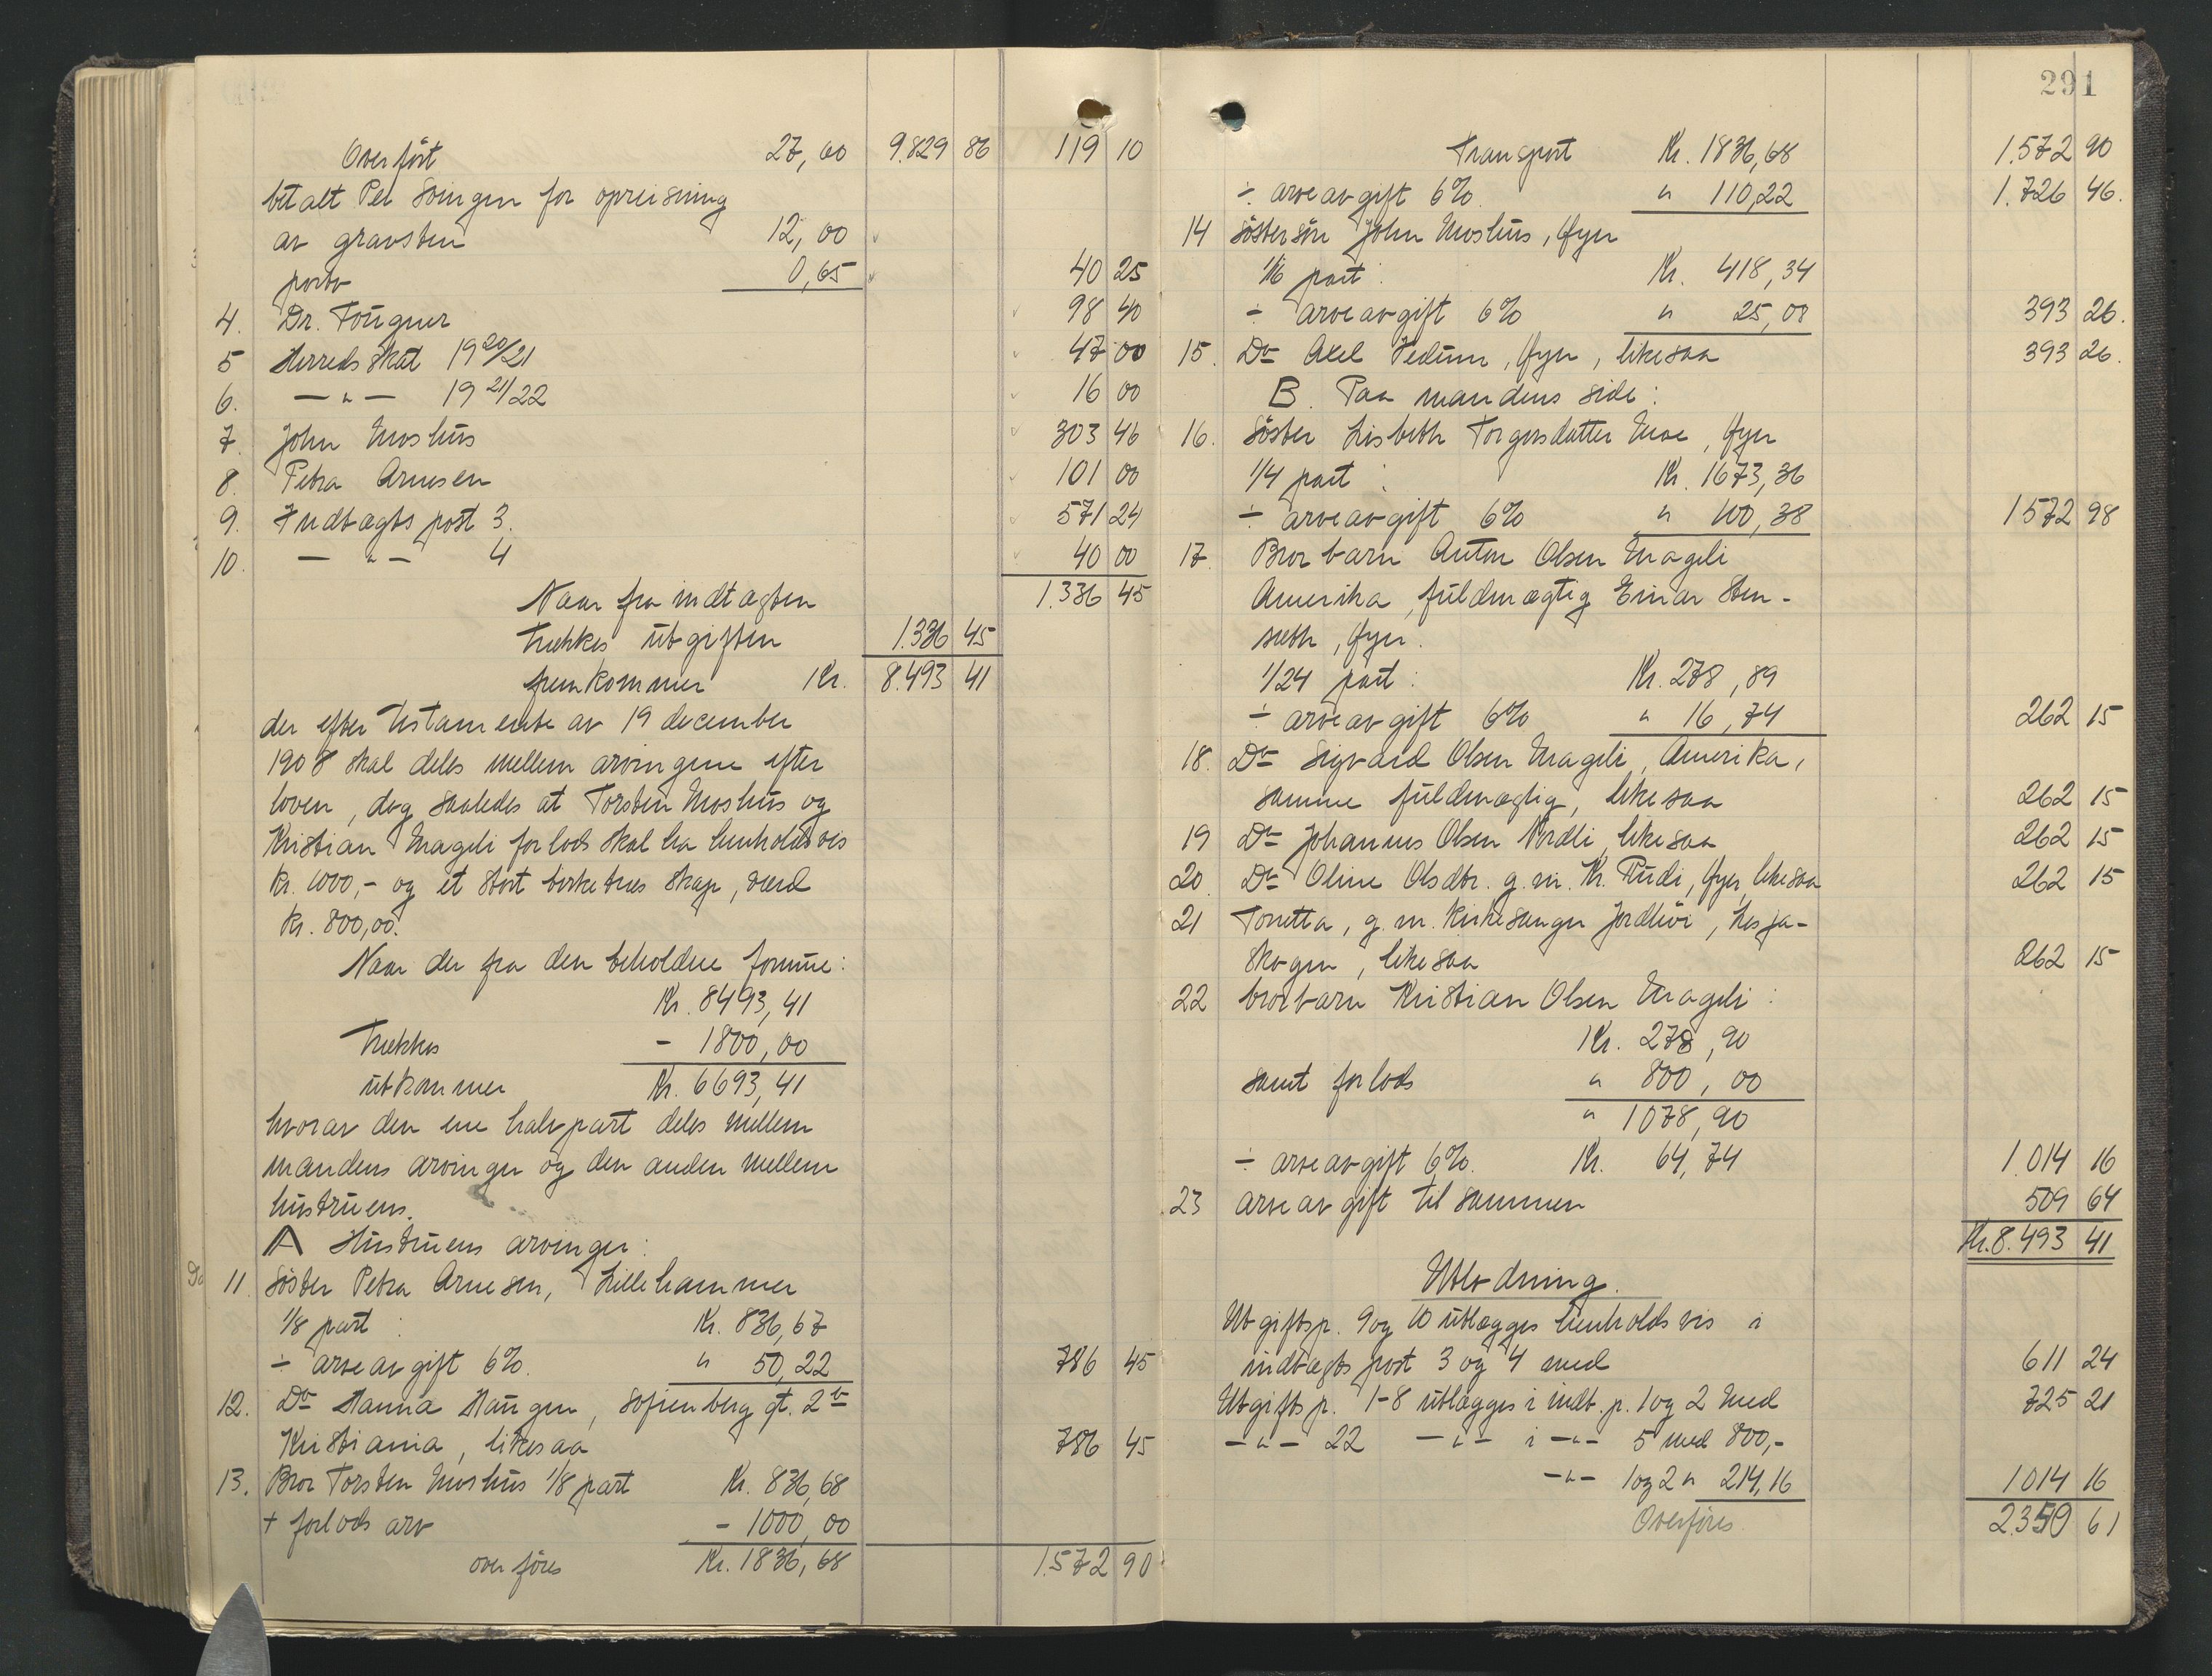 Overført 27,00 9.829 86 119 10
betalt Per Svingen for opreisning
av gravsten 12,00
porto 0,65 40 25
4. Dr. Fougner 98 40
5 Herredsskat 1920/21 47 00
6. —"— 1921/22 16 00
7. John Moshus 303 46
8. Petra Arnesen 101 00
9. Indtægts post 3. 571 24
10. —"— 4 40 00
Naar fra indtægten 1.336 45
trækkes utgiften 1.336 45
fremkommer Kr. 8.493 41
der efter testamente av 19 december
1908 skal deles mellem arvingene efter
loven, dog saaledes at Torsten Moshus og
Kristian Mageli forlods skal ha henholdsvis
kr. 1000,- og et stort birketræs skap, værd
kr. 800,00.
Naar der fra den beholdne formue:
Kr. 8493,41
trækkes - 1800,00
utkommer Kr. 6693,41
hvorav den ene halvpart deles mellem
mandens arvinger og den anden mellem
hustruens.
A Hustruens arvinger:
11. Søster Petra Arnesen, Lillehammer
1/8 part: Kr. 836,67
÷ arveavgift 6%. " 50,22 786 45
12. Do Hanna Haugen, Sofienberg gt. 2b
Kristiania, likesaa 786 45
13. Bror Torsten Moshus 1/8 part Kr. 836,68
+ forlods arv - 1000,00
overføres Kr. 1836,68 1.572 90
291
Transport Kr. 1836,68 1.572 90
÷ arveavgift 6%. " 110,22 1.726 46.
14 Søstersøn John Moshus, Øyer
1/16 part: Kr. 418,34
÷ arveavgift 6% " 25,08 393 26.
15. Do Axel Vedum, Øyer, likesaa 393 26.
B. Paa mandens side:
16. Søster Lisbeth Torgersdatter Moe, Øyer
1/4 part: Kr. 1673,36
÷ arveavgift 6% " 100,38 1572 98
17. Brorbarn Anton Olsen Mageli
Amerika, fuldmægtig Einar Sten-
sæth, Øyer.
1/24 part: Kr. 278,89
÷ arveavgift 6% " 16,74 262 15
18. Do Sigvard Olsen Mageli, Amerika,
samme fuldmægtig, likesaa 262 15
19 Do Johannes Olsen Nordli, likesaa 262 15
20. Do Oline Olsdtr. g. m. Kr. Rudi, Øyer, likesaa 262 15
21 Tonetta, g. m. kirkesanger Jordhøi, Hesja-
skogen, likesaa 262 15
22 brorbarn Kristian Olsen Mageli:
Kr. 278,90
samt forlods " 800,00
" 1078,90
÷ arveavgift 6%. Kr. 64,74 1.014 16
23 arveavgift tilsammen 509 64
Kr. 8.493 41
Utlodning.
Utgiftsp. 9 og 10 utlægges henholdsvis i
indtægts post 3 og 4 med 611 24
Utgiftsp. 1-8 utlægges i indt. p. 1 og 2 med 725 21
—"— 22 —"— i —"— 5 med 800,-
—"— 1 og 2 " 214,16 1014 16
Overføres 2350 61